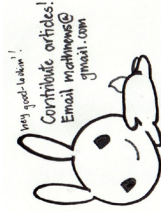 hey good-lookin'!
Contribute articles!
Email mathnews@
gmail.com